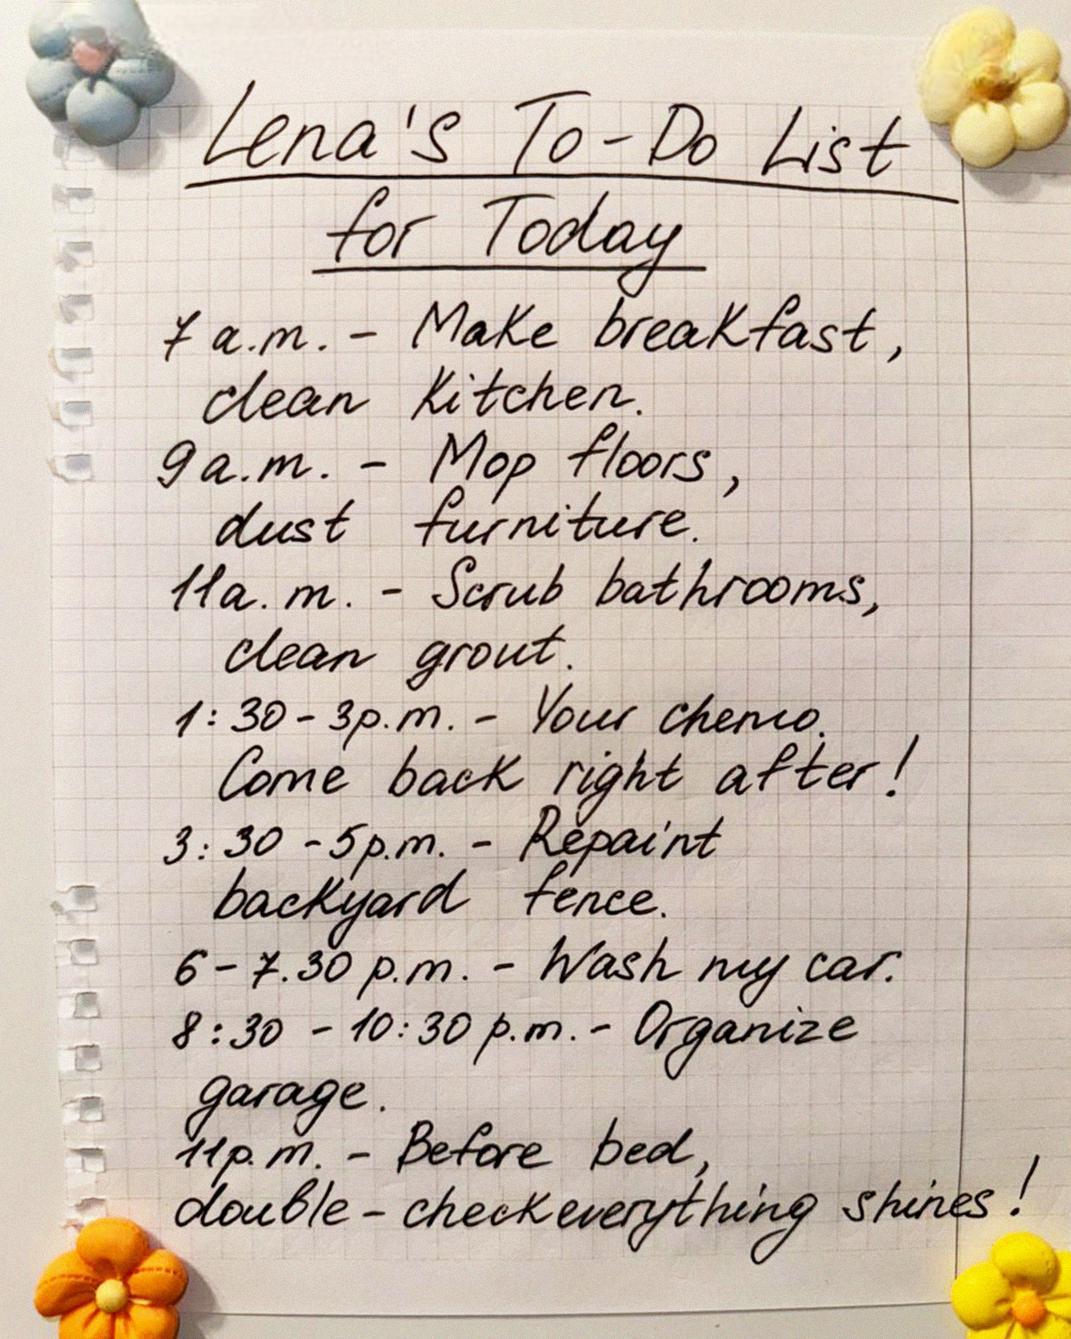 Lena's To-Do List
for Today
7 a.m. - Make breakfast,
clean kitchen.
9 a.m. - Mop floors,
dust furniture.
11 a.m. - Scrub bathrooms,
clean grout.
1:30 - 3 p.m. - Your chemo.
Come back right after!
3:30 - 5 p.m. - Repaint
backyard fence.
6 - 7.30 p.m. - Wash my car.
8:30 - 10:30 p.m. - Organize
garage.
11 p.m. - Before bed,
double-check everything shines!